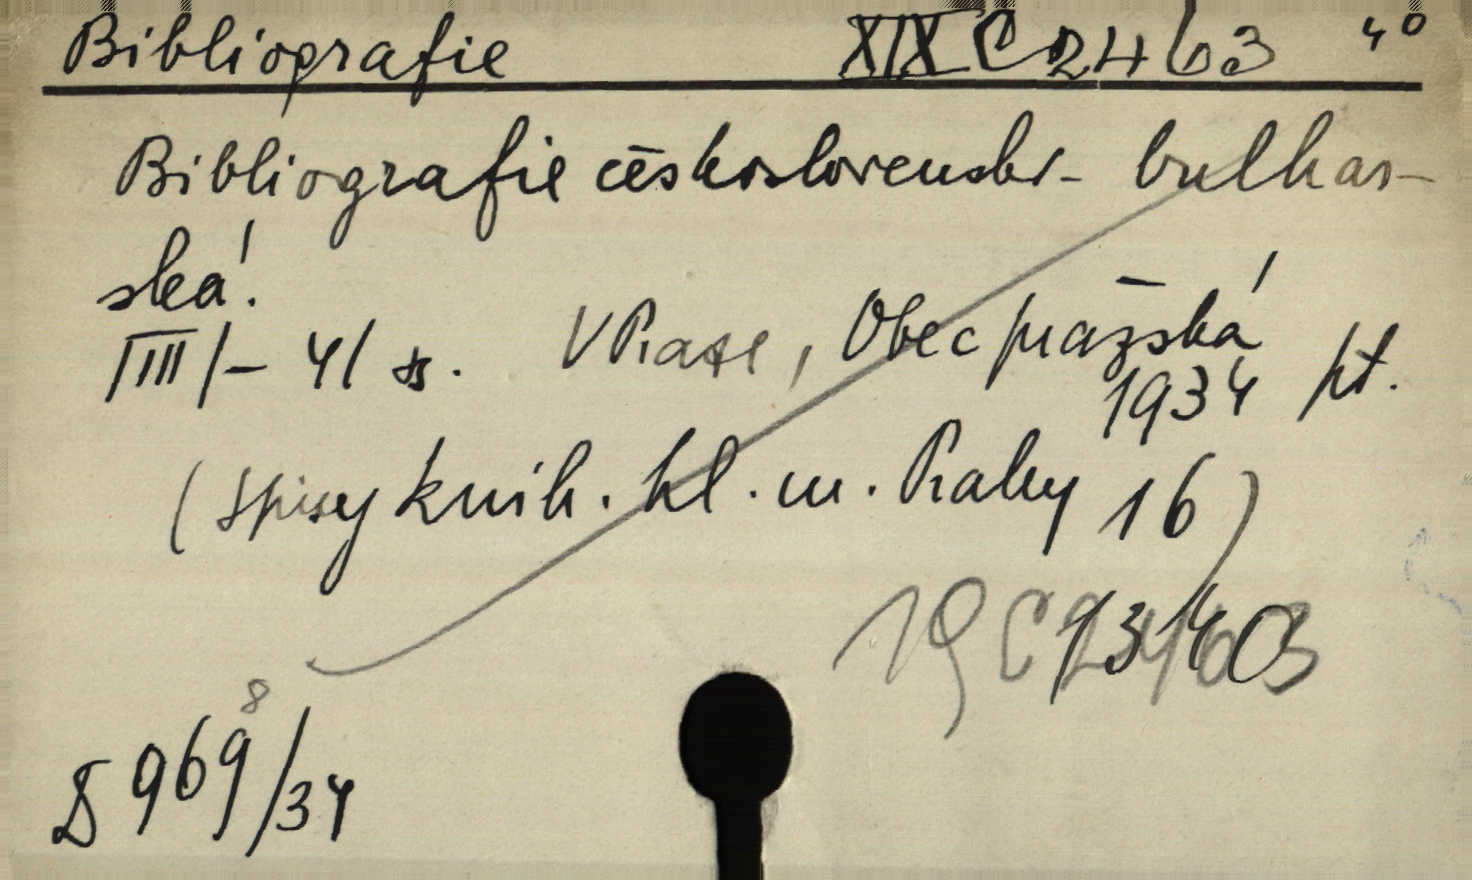 Bibliografie XIX C 2463 4°
Bibliografie československo-bulhar-
ská.
III/- 41 s. V Praze, Obec pražská
1934 pt.
(Spisy knih. hl. m. Prahy 16)
19 C 2463
13403
8
D 969/34